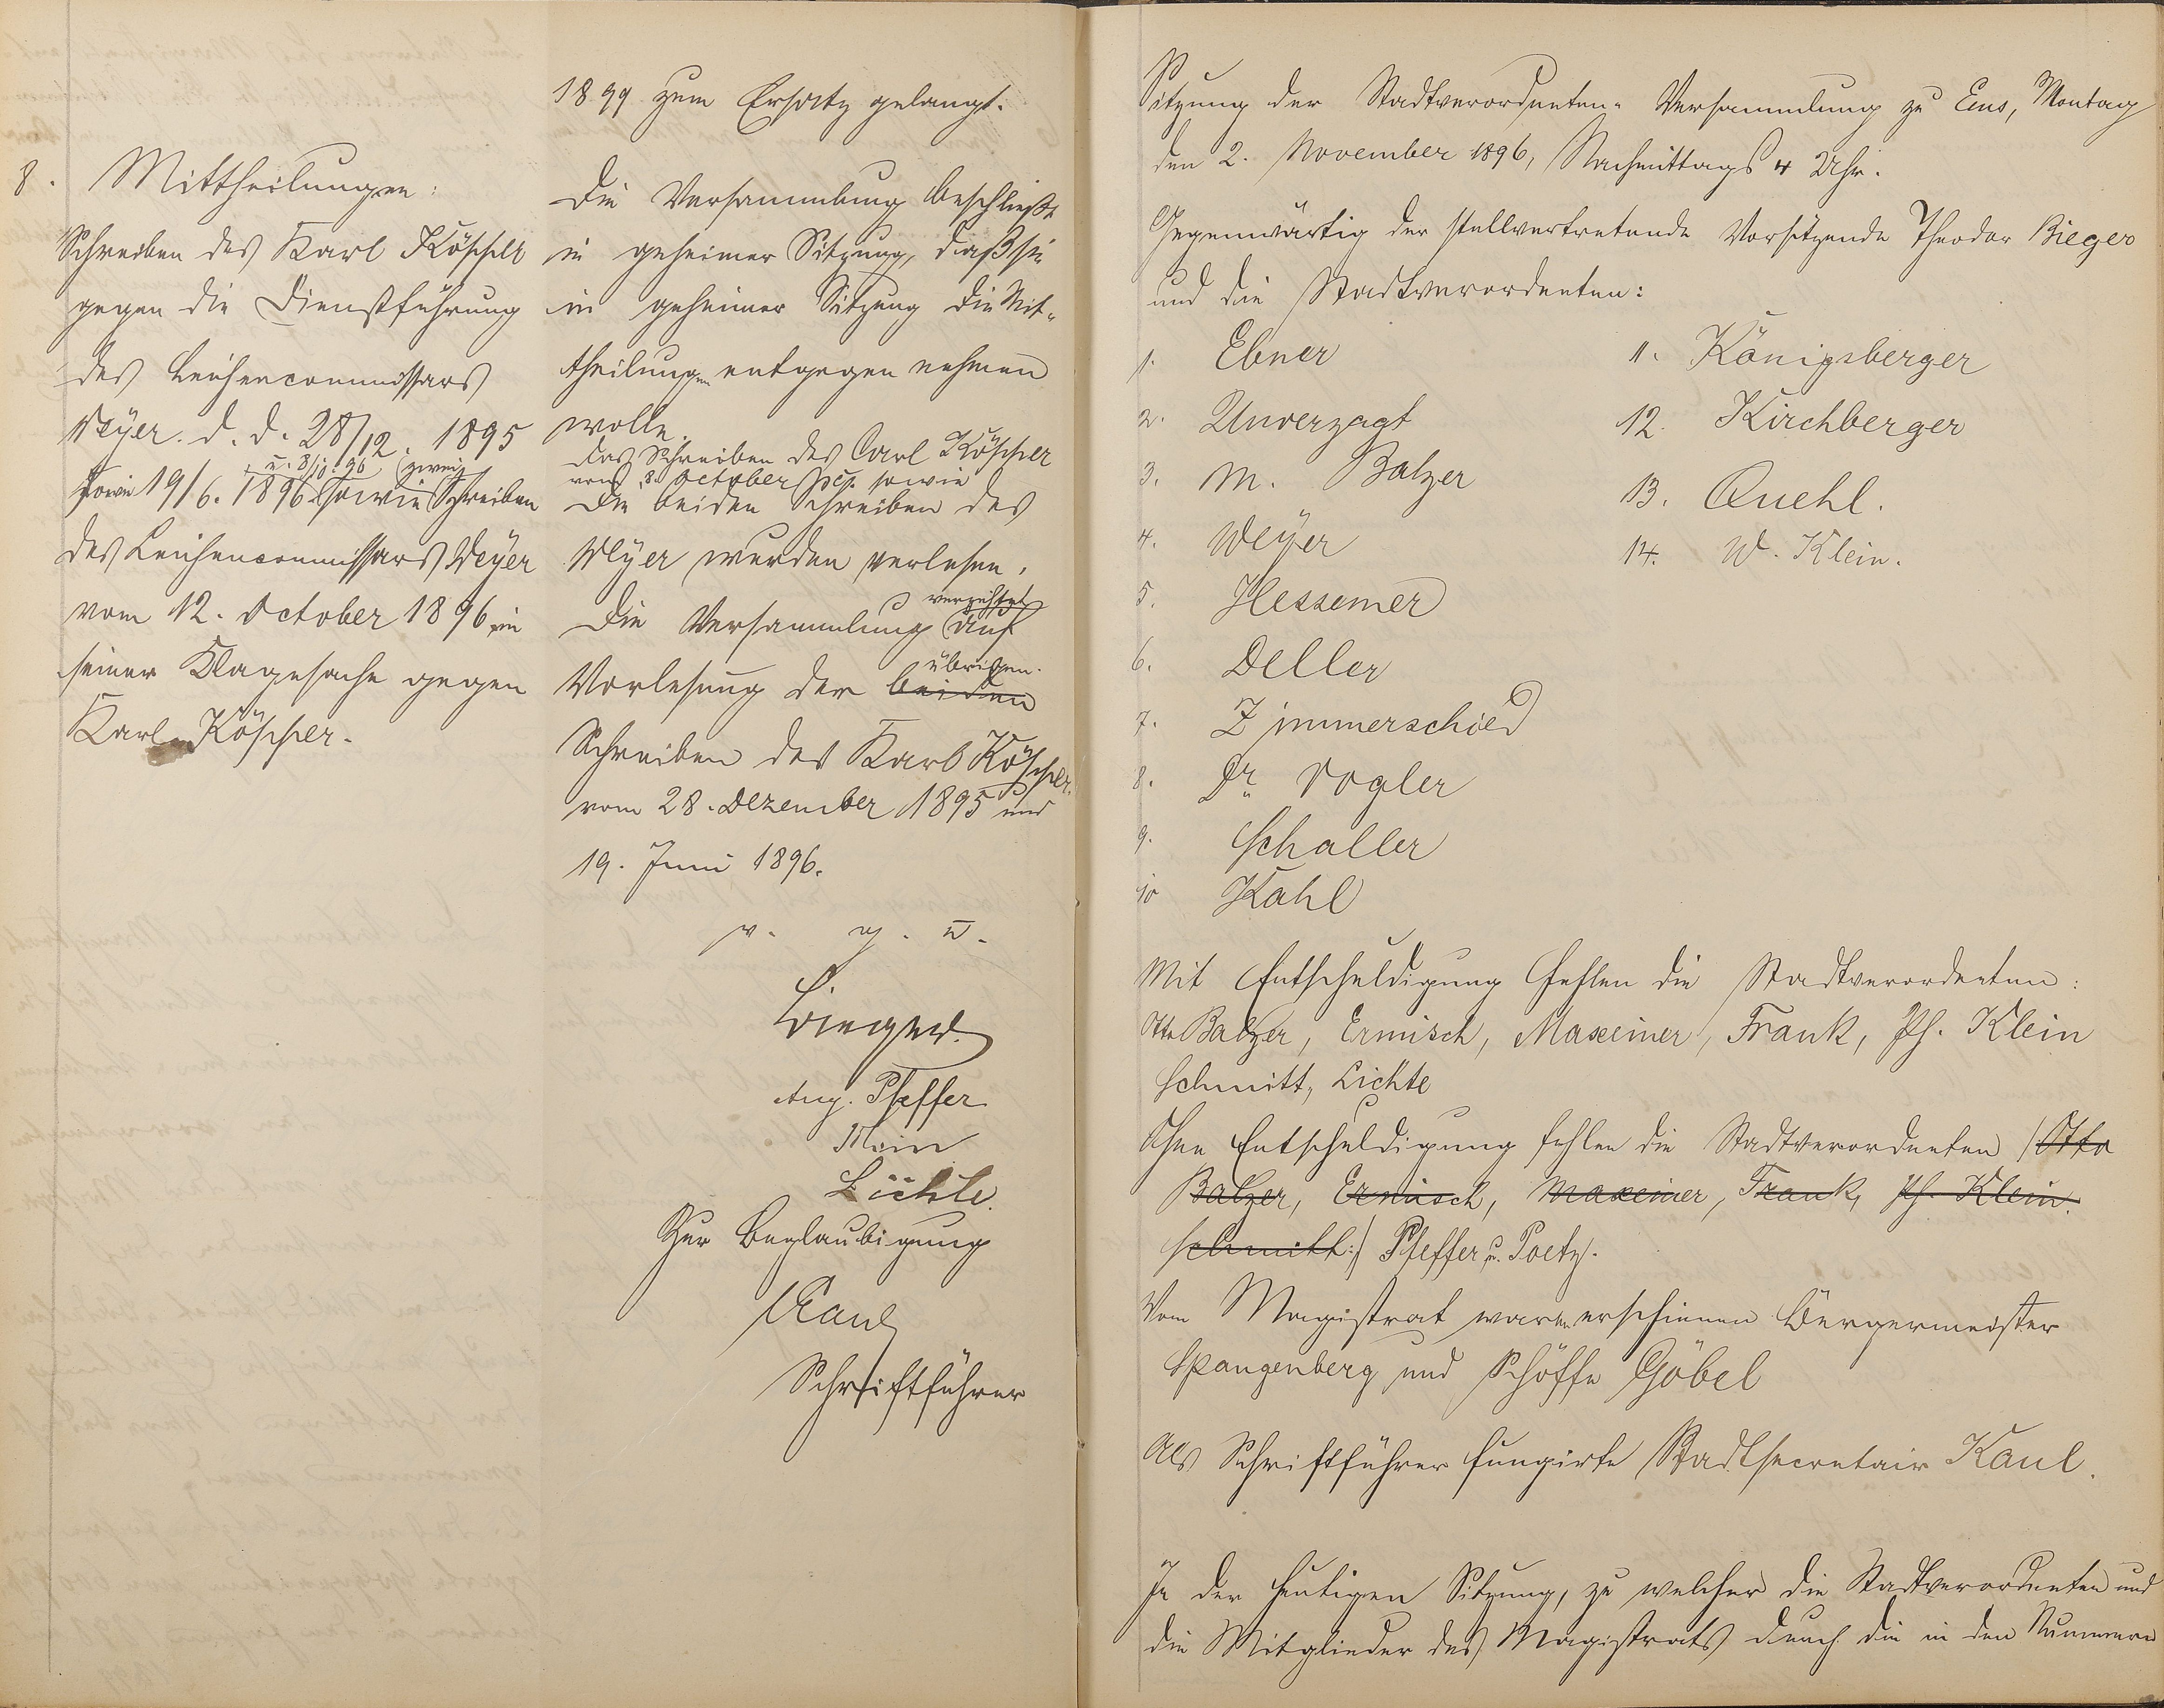 8. Mittheilungen:
Schreiben des Karl Höscher
gegen die Dienstführung
des Leichencommissars
Weyer d. d. 28/12. 1895
u. 8/10. 96 zwei
sowie 19/6. 1896 sowie Schreiben
des Leichencommissars Weyer
vom 12. October 1896 in
seiner Klagesache gegen
Karl
1899 zum Ersatz gelangt.
Die Versammlung beschließt
in geheimer Sitzung, daß sie
in geheimer Sitzung die Mit-
theilungen entgegen nehmen
wolle.
Das Schreiben des Carl
vom 8. October sowie
die beiden Schreiben des
Weyer wurden verlesen.
verzichtet
Die Versammlung auf
übrigen
Vorlesung der beiden
Schreiben des Karl
vom 28. Dezember 1895 und
19. Juni 1896.
v. g. u.
Bieger.
Aug. Pfeffer
Klein
Lichte.
Zur Beglaubigung
Kaul
Schriftführer
Sitzung der Stadtverordneten-Versammlung zu Ems, Montag
den 2. November 1896, Nachmittags 4 Uhr.
Gegenwärtig der stellvertretende Vorsitzende Theodor Bieger
und die Stadtverordneten:
1. Ebner
2. Unverzagt
3. M. Balzer
4. Weyer
5. Hessemer
6. Deller
7. Zimmerschied
8. Dr. Vogler
9. Schaller
10 Kahl
11. Königsberger
12. Kirchberger
13. Quehl.
14. W. Klein.
Mit Entschuldigung fehlen die Stadtverordneten:
Otto Balzer, Ermisch, Maxeiner, Frank, Ph. Klein
Schmitt, Lichte
Ohne Entschuldigung fehlen die Stadtverordneten /: Otto
Balzer, Ermisch, Maxeiner, Frank, Ph. Klein.
Schmitt :/ Pfeffer u. Poetz.
Vom Magistrat waren erschienen Bürgermeister
Spangenberg und Schöffe Göbel
Als Schriftführer fungirte Stadtsecretair Kaul.
In der heutigen Sitzung, zu welcher die Stadtverordneten und
die Mitglieder des Magistrats durch die in den Nummern